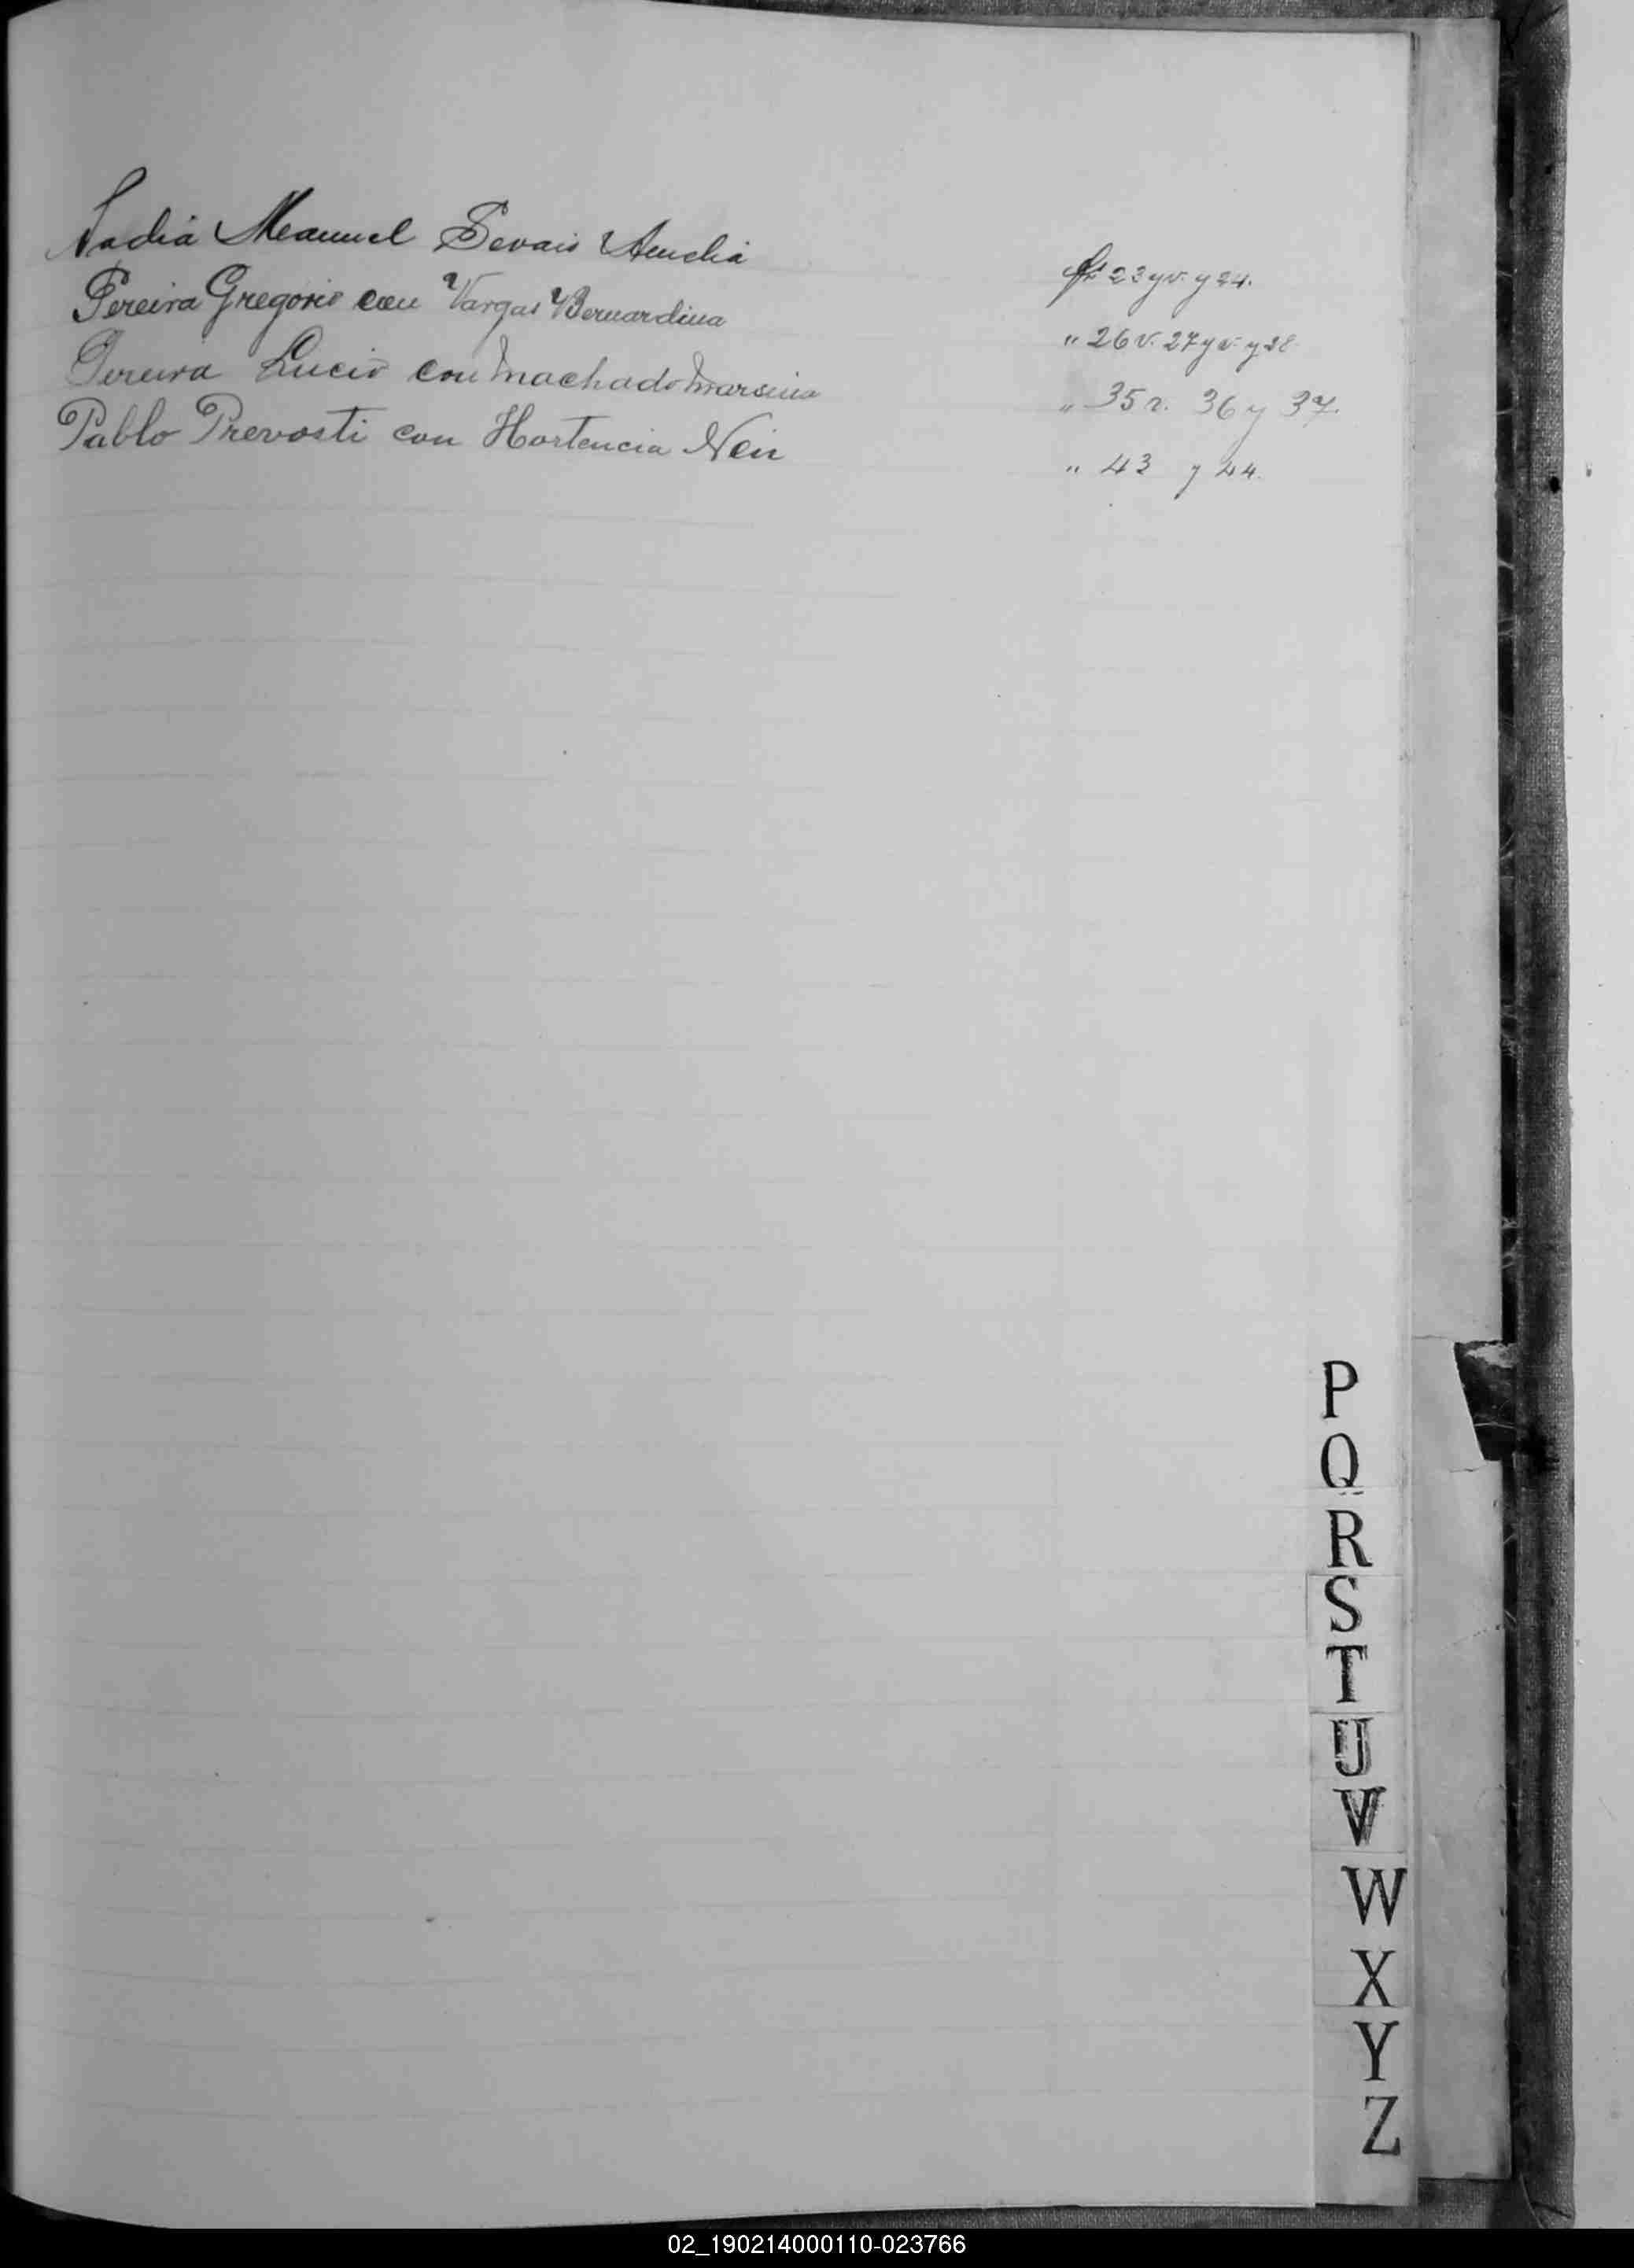 Manuel Amelia
Pereira Gregorio con Vargas Bernardina
Pereira Lucio con Machado
Pablo Prevosti con Hortencia Nein
23 y v. y 24.
" 26 v. 27 y v. y 28
" 35 v. 36 y 37.
" 43 y 44.
P
Q
R
S
T
U
V
W
X
Y
Z
02_190214000110-023766